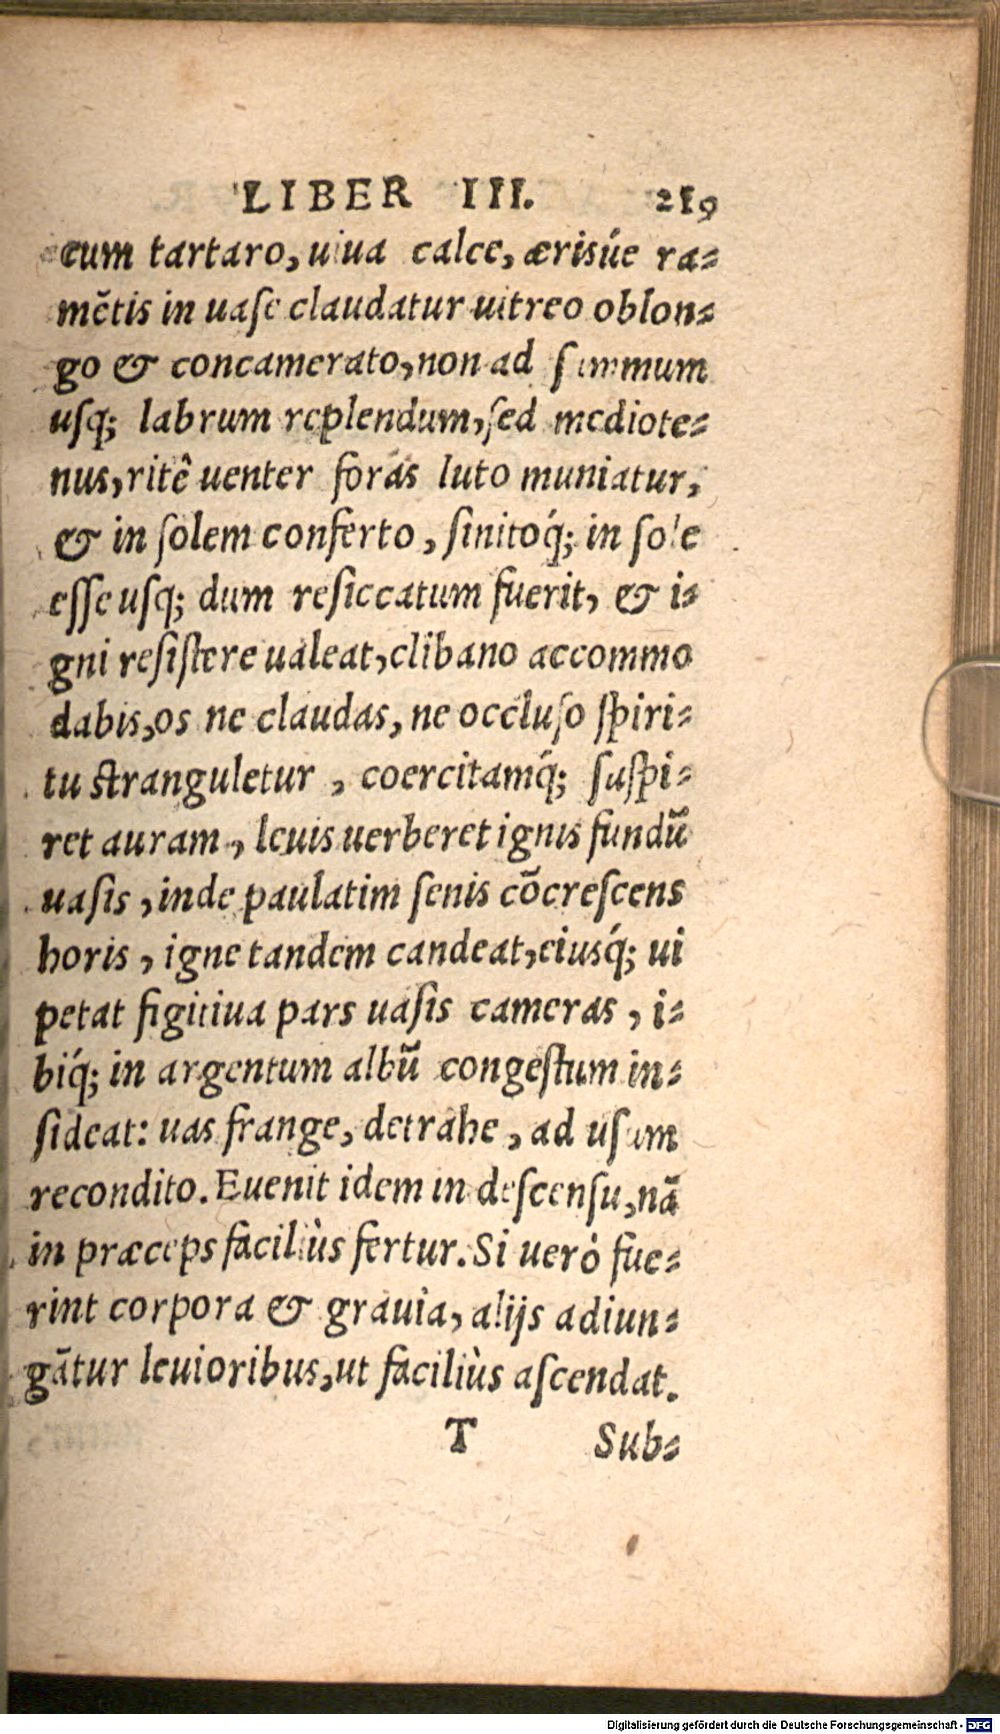 LIBER III. 219
cum tartaro, uiua calce, ærisúe ra-
mẽtis in uase claudatur uitreo oblon-
go & concamerato, non ad summum
usq; labrum replendum, sed mediote-
nus, ritê uenter foràs luto muniatur,
& in solem conferto, sinitoq́; in sole
esse usq; dum resiccatum fuerit, & i-
gni resistere ualeat, clibano accommo
dabis, os ne claudas, ne occluso spiri-
tu stranguletur, coercitamq́; suspi-
ret auram, leuis uerberet ignis fundũ
uasis, inde paulatim senis cõcrescens
horis, igne tandem candeat, eiusq́; ui
petat figitiua pars uasis cameras, i-
biq́; in argentum albũ congestum in-
sideat: uas frange, detrahe, ad usum
recondito. Euenit idem in descensu, nã
in præceps faciliùs fertur. Si uerò fue-
rint corpora & grauia, alijs adiun-
gãtur leuioribus, ut faciliùs ascendat.
T Sub-
Digitalisierung gefördert durch die Deutsche Forschungsgemeinschaft - DFG